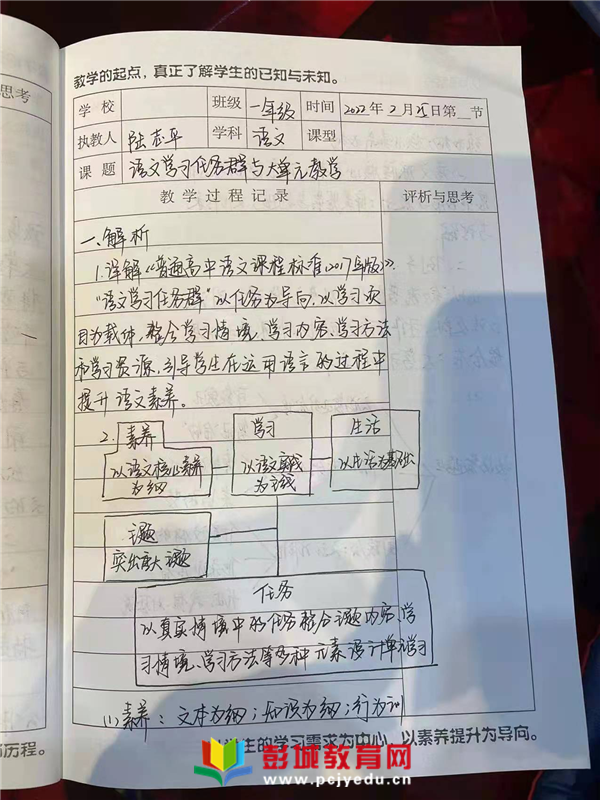 教学的起点，真正了解学生的已知与未知。
思考
学 校 班级 一年级 时间 2022年2月25日第 节
执教人 陆志平 学科 语文 课型
课 题 语文学习任务群与大单元教学
教 学 过 程 记 录 评析与思考
一、解析
1.详解《普通高中语文课程标准(2017年版)》.
“语文学习任务群”以任务为导向,以学习项
目为载体,整合学习情境、学习内容、学习方法
和学习资源,引导学生在运用语言的过程中
提升语文素养。
2. 素养 学习 生活
以语文核心素养 以语文实践 以生活为基础
为纲 为主线
主题
突出大主题
任务
以真实情境中的任务整合主题内容、学
习情境、学习方法等多种元素设计单元学习
(1)素养：文本为纲；知识为纲；行为训
学生的学习需求为中心，以素养提升为导向。
历程。
彭城教育网
www.pcjyedu.cn